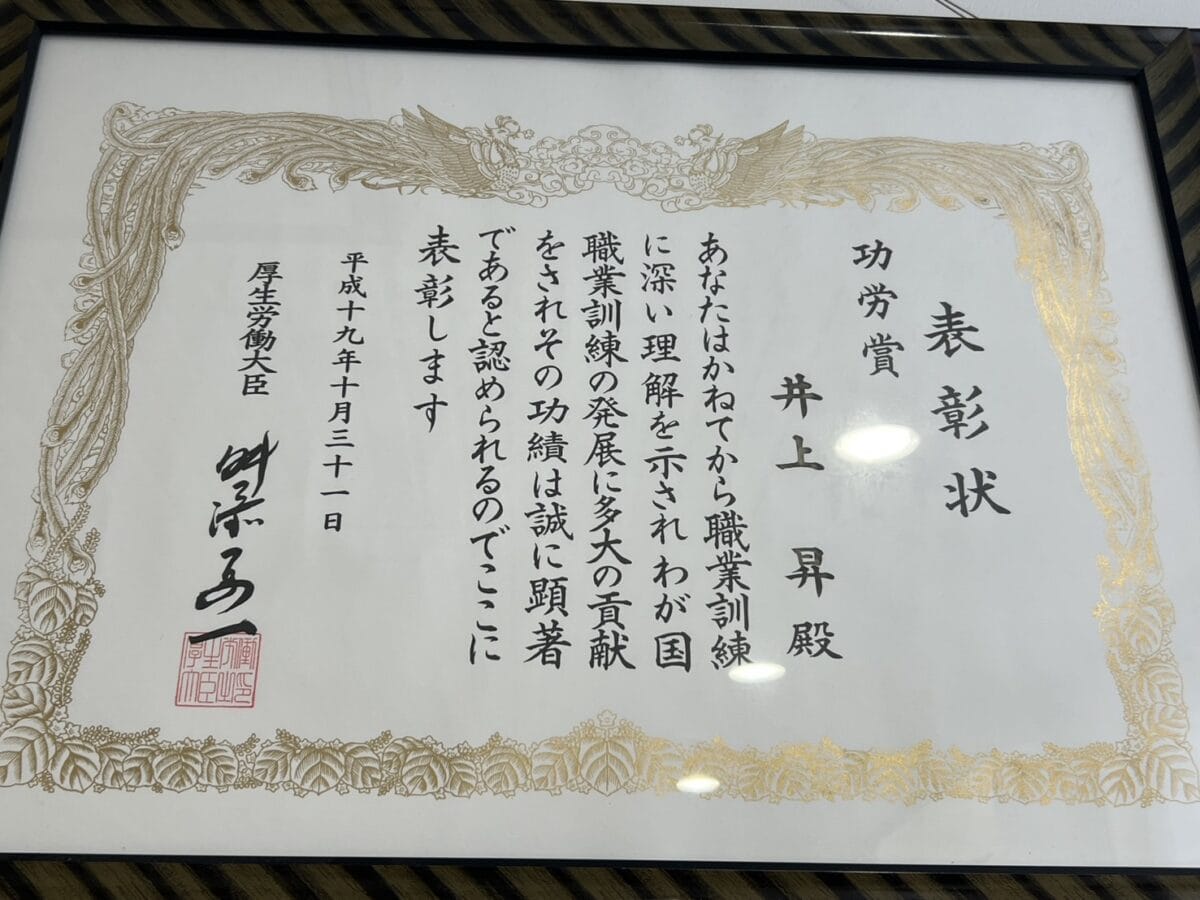 表彰状
功労賞
井上 昇 殿
あなたはかねてから職業訓練
に深い理解を示されわが国
職業訓練の発展に多大の貢献
をされその功績は誠に顕著
であると認められるのでここに
表彰します
平成十九年十月三十一日
厚生労働大臣 舛添要一